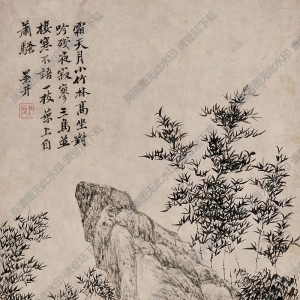 霜天月小竹林高坐對
吟殘夜寂寥三鳥並
棲寒不語一枝葉上自
蕭騷 墨井